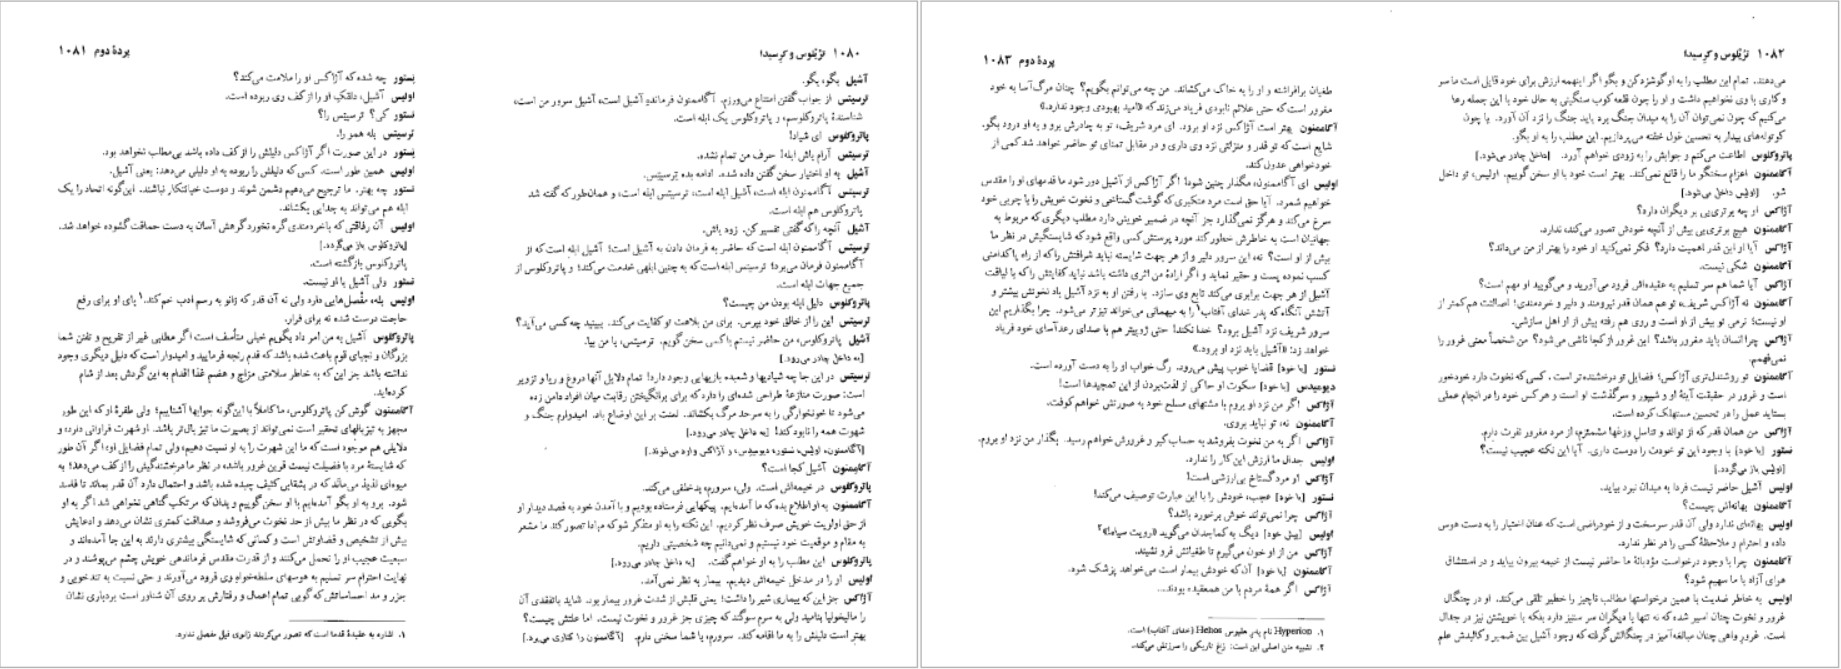 ۱۰۸۰ ترُیْلوس و کرِسیدا
آشیل بگو، بگو.
ترسیتس از جواب گفتن امتناع می‌ورزم. آگاممنون فرماندهٔ آشیل است، آشیل سرور من است،
شناسندهٔ پاتروکلوسم، و پاتروکلوس یک ابله است.
پاتروکلوس ای شیاد!
ترسیتس آرام باش ابله! حرف من تمام نشده.
آشیل به او اختیار سخن گفتن داده شده. ادامه بده ترسیتس.
ترسیتس آگاممنون ابله است، آشیل ابله است، ترسیتس ابله است، و همان‌طور که گفته شد
پاتروکلوس هم ابله است.
آشیل آنچه را که گفتی تفسیر کن. زود باش.
ترسیتس آگاممنون ابله است که حاضر به فرمان دادن به آشیل است! آشیل ابله است که از
آگاممنون فرمان می‌برد! ترسیتس ابله است که به چنین ابلهی خدمت می‌کند! و پاتروکلوس از
جمیع جهات ابله است.
پاتروکلوس دلیل ابله بودن من چیست؟
ترسیتس این را از خالق خود بپرس. برای من بلاهت تو کفایت می‌کند. ببینید چه کسی می‌آید؟
آشیل پاتروکلوس، من حاضر نیستم با کسی سخن گویم. ترسیتس، با من بیا.
[به داخل چادر می‌رود.]
ترسیتس در این جا چه شیادیها و شعبده بازیهایی وجود دارد! تمام دلایل آنها دروغ و ریا و تزویر
است: صورت منازعهٔ طراحی شده‌ای را دارد که برای برانگیختن رقابت میان افراد دامن زده
می‌شود تا خونخوارگی را به سرحد مرگ بکشاند. لعنت بر این اوضاع باد. امیدوارم جنگ و
شهوت همه را نابود کند! [به داخل چادر می‌رود.]
[آگاممنون، اولیس، نستور، دیومیدس، و آژاکس وارد می‌شوند.]
آگاممنون آشیل کجا است؟
پاتروکلوس در خیمه‌اش است. ولی، سرورم، بدخلقی می‌کند.
آگاممنون به او اطلاع بده که ما آمده‌ایم. پیکهایی فرستاده بودیم و با آمدن خود به قصد دیدار او
از حق اولویت خویش صرف نظر کردیم. این نکته را به او متذکر شو که مبادا تصور کند ما مشعر
به مقام و موقعیت خود نیستیم و نمی‌دانیم چه شخصیتی داریم.
پاتروکلوس این مطلب را به او خواهم گفت. [به داخل چادر می‌رود.]
اولیس او را در مدخل خیمه‌اش دیدیم. بیمار به نظر نمی‌آمد.
آژاکس جز این که بیماری شیر را داشت؛ یعنی قلبش از شدت غرور بیمار بود. شاید باتفقدی آن
را مالیخولیا بنامید ولی به سرم سوگند که چیزی جز غرور و نخوت نیست. اما علتش چیست؟
بهتر است دلیلش را به ما اقامه کند. سرورم، با شما سخنی دارم. [آگاممنون را کناری می‌برد.]
پردهٔ دوم ۱۰۸۱
نستور چه شده که آژاکس او را ملامت می‌کند؟
اولیس آشیل، دلقک او را از کف وی ربوده است.
نستور کی؟ ترسیتس را؟
ترسیتس بله همو را.
نستور در این صورت اگر آژاکس دلیلش را از کف داده باشد بی‌مطلب نخواهد بود.
اولیس همین طور است، کسی که دلیلش را ربوده به او دلیلی می‌دهد: یعنی آشیل.
نستور چه بهتر. ما ترجیح می‌دهیم دشمن شوند و دوست خیانتکار نباشند. این‌گونه اتحاد را یک
ابله هم می‌تواند به جدایی بکشاند.
اولیس آن رفاقتی که با خردمندی گره نخورد گرهش آسان به دست حماقت گشوده خواهد شد.
[پاتروکلوس باز می‌گردد.]
پاتروکلوس بازگشته است.
نستور ولی آشیل با او نیست.
اولیس بله، مفصل‌هایی دارد ولی نه آن قدر که زانو به رسم ادب خم کند.۱ پای او برای رفع
حاجت درست شده نه برای فرار.
پاتروکلوس آشیل به من امر داد بگویم خیلی متأسف است اگر مطلبی غیر از تفریح و تفنن شما
بزرگان و نجبای قوم باعث شده باشد که قدم رنجه فرمایید و امیدوار است که دلیل دیگری وجود
نداشته باشد جز این که به خاطر سلامتی مزاج و هضم غذا اقدام به این گردش بعد از شام
کرده‌اید.
آگاممنون گوش کن پاتروکلوس، ما کاملاً با این‌گونه جوابها آشناییم؛ ولی طفرهٔ او که این طور
مجهز به تیزبالهای تحقیر است نمی‌تواند از بصیرت ما تیز بال‌تر باشد. او شهرت فراوانی دارد؛ و
دلایلی هم موجود است که ما این شهرت را به او نسبت دهیم، ولی تمام فضایل او، اگر آن طور
که شایستهٔ مرد با فضیلت نیست قرین غرور باشد، در نظر ما درخشندگیش را از کف می‌دهد؛ به
میوه‌ای لذیذ می‌ماند که در بشقابی کثیف چیده شده باشد و احتمال دارد آن قدر بماند تا فاسد
شود. برو به او بگو آمده‌ایم با او سخن گوییم و بدان که مرتکب گناهی نخواهی شد اگر به او
بگویی که در نظر ما بیش از حد نخوت می‌فروشد و صداقت کمتری نشان می‌دهد و ادعایش
بیش از تشخیص و قضاوتش است و کسانی که شایستگی بیشتری دارند به این جا آمده‌اند و
سبعیت عجیب او را تحمل می‌کنند و از قدرت مقدس فرماندهی خویش چشم می‌پوشند و در
نهایت احترام سر تسلیم به هوسهای سلطه‌خواه وی فرود می‌آورند و حتی نسبت به تندخویی و
جزر و مد احساساتش که گویی تمام اعمال و رفتارش بر روی آن شناور است بردباری نشان
۱. اشاره به عقیدهٔ قدما است که تصور می‌کردند زانوی فیل مفصل ندارد.
۱۰۸۲ ترُیْلوس و کرِسیدا
می‌دهند. تمام این مطلب را به او گوشزد کن و بگو اگر اینهمه ارزش برای خود قایل است ما سر
و کاری با وی نخواهیم داشت و او را چون قلعه کوب سنگینی به حال خود با این جمله رها
می‌کنیم که چون نمی‌توان آن را به میدان جنگ برد باید جنگ را نزد آن آورد. ما چون
کوتوله‌های بیدار به تحسین غول خفته می‌پردازیم. این مطلب را به او بگو.
پاتروکلوس اطاعت می‌کنم و جوابش را به زودی خواهم آورد. [داخل چادر می‌شود.]
آگاممنون اعزام سخنگو ما را قانع نمی‌کند. بهتر است خود با او سخن گوییم. اولیس، تو داخل
شو. [اولیس داخل می‌شود.]
آژاکس او چه برتری‌یی بر دیگران دارد؟
آگاممنون هیچ برتری‌یی بیش از آنچه خودش تصور می‌کند، ندارد.
آژاکس آیا او این قدر اهمیت دارد؟ فکر نمی‌کنید او خود را بهتر از من می‌داند؟
آگاممنون شکی نیست.
آژاکس آیا شما هم سر تسلیم به عقیده‌اش فرود می‌آورید و می‌گویید او مهم است؟
آگاممنون نه آژاکس شریف، تو هم همان قدر نیرومند و دلیر و خردمندی؛ اصالتت هم کمتر از
او نیست؛ نرمی تو بیش از او است و روی هم رفته بیش از او اهل سازشی.
آژاکس چرا انسان باید مغرور باشد؟ این غرور از کجا ناشی می‌شود؟ من شخصاً معنی غرور را
نمی‌فهمم.
آگاممنون تو روشندل‌تری آژاکس؛ فضایل تو درخشنده‌تر است. کسی که نخوت دارد خودخور
است و غرور در حقیقت آینهٔ او و شیپور و سرگذشت او است و هر کس خود را در انجام عملی
بستاید عمل را در تحسین مستهلک کرده است.
آژاکس من همان قدر که از تولد و تناسل وزغها مشمئزم، از مرد مغرور نفرت دارم.
نستور [با خود] با وجود این تو خودت را دوست داری. آیا این نکته عجیب نیست؟
[اولیس باز می‌گردد.]
اولیس آشیل حاضر نیست فردا به میدان نبرد بیاید.
آگاممنون بهانه‌اش چیست؟
اولیس بهانه‌ای ندارد ولی آن قدر سرسخت و از خودراضی است که عنان اختیار را به دست هوس
داده و احترام و ملاحظهٔ کسی را در نظر ندارد.
آگاممنون چرا با وجود درخواست مؤدبانهٔ ما حاضر نیست از خیمه بیرون بیاید و در استنشاق
هوای آزاد با ما سهیم شود؟
اولیس به خاطر ضدیت با همین درخواستها مطالب ناچیز را خطیر تلقی می‌کند. او در چنگال
غرور و نخوت چنان اسیر شده که نه تنها با دیگران سر ستیز دارد بلکه با خویشتن نیز در جدال
است. غرور واهی چنان مبالغه‌آمیز در چنگالش گرفته که وجود آشیل بین ضمیر و کالبدش علم
پردهٔ دوم ۱۰۸۳
طغیان برافراشته و او را به خاک می‌کشاند. من چه می‌توانم بگویم؟ چنان مرگ‌آسا به خود
مغرور است که حتی علائم نابودی فریاد می‌زند که «امید بهبودی وجود ندارد.»
آگاممنون بهتر است آژاکس نزد او برود. ای مرد شریف، تو به چادرش برو و به او درود بگو.
شایع است که تو قدر و منزلتی نزد وی داری و در مقابل تمنای تو حاضر خواهد شد کمی از
خودخواهی عدول کند.
اولیس ای آگاممنون، مگذار چنین شود! اگر آژاکس از آشیل دور شود ما قدمهای او را مقدس
خواهیم شمرد. آیا حق است مرد متکبری که گوشت گستاخی و نخوت خویش را با چربی خود
سرخ می‌کند و هرگز نمی‌گذارد جز آنچه در ضمیر خویش دارد مطلب دیگری که مربوط به
جهانیان است به خاطرش خطور کند مورد پرستش کسی واقع شود که شایستگیش در نظر ما
بیش از او است؟ نه، این سرور دلیر و از هر جهت شایسته نباید شرافتش را که از راه پاکدامنی
کسب نموده پست و حقیر نماید و اگر ارادهٔ من اثری داشته باشد نباید کفایتش را که با لیاقت
آشیل از هر جهت برابری می‌کند تابع وی سازد. با رفتن او به نزد آشیل باد نخوتش بیشتر و
آتشش آنگاه که پدر خدای آفتاب۱ را به میهمانی می‌خواند تیزتر می‌شود. چرا بگذاریم این
سرور شریف نزد آشیل برود؟ خدا نکند! حتی ژوپیتر هم با صدای رعدآسای خود فریاد
خواهد زد: «آشیل باید نزد او برود.»
نستور [با خود] قضایا خوب پیش می‌رود. رگ خواب او را به دست آورده است.
دیومیدس [با خود] سکوت او حاکی از لذت‌بردن از این تمجیدها است!
آژاکس اگر من نزد او بروم با مشتهای مسلح خود به صورتش خواهم کوفت.
آگاممنون نه، تو نباید بروی.
آژاکس اگر به من نخوت بفروشد به حساب کبر و غرورش خواهم رسید. بگذار من نزد او بروم.
اولیس جدال ما ارزش این کار را ندارد.
آژاکس او مرد گستاخ بی‌ارزشی است!
نستور [با خود] عجب، خودش را با این عبارت توصیف می‌کند!
آژاکس چرا نمی‌تواند خوش برخورد باشد؟
اولیس [پیش خود] دیگ به کماجدان می‌گوید «رویت سیاه!»۲
آژاکس من از او خون می‌گیرم تا طغیانش فرو نشیند.
آگاممنون [با خود] آن که خودش بیمار است می‌خواهد پزشک شود.
آژاکس اگر همهٔ مردم با من همعقیده بودند...
۱. Hyperion نام پدر هلیوس Helios (خدای آفتاب) است.
۲. تشبیه متن اصلی این است: زاغ تاریکی را سرزنش می‌کند.